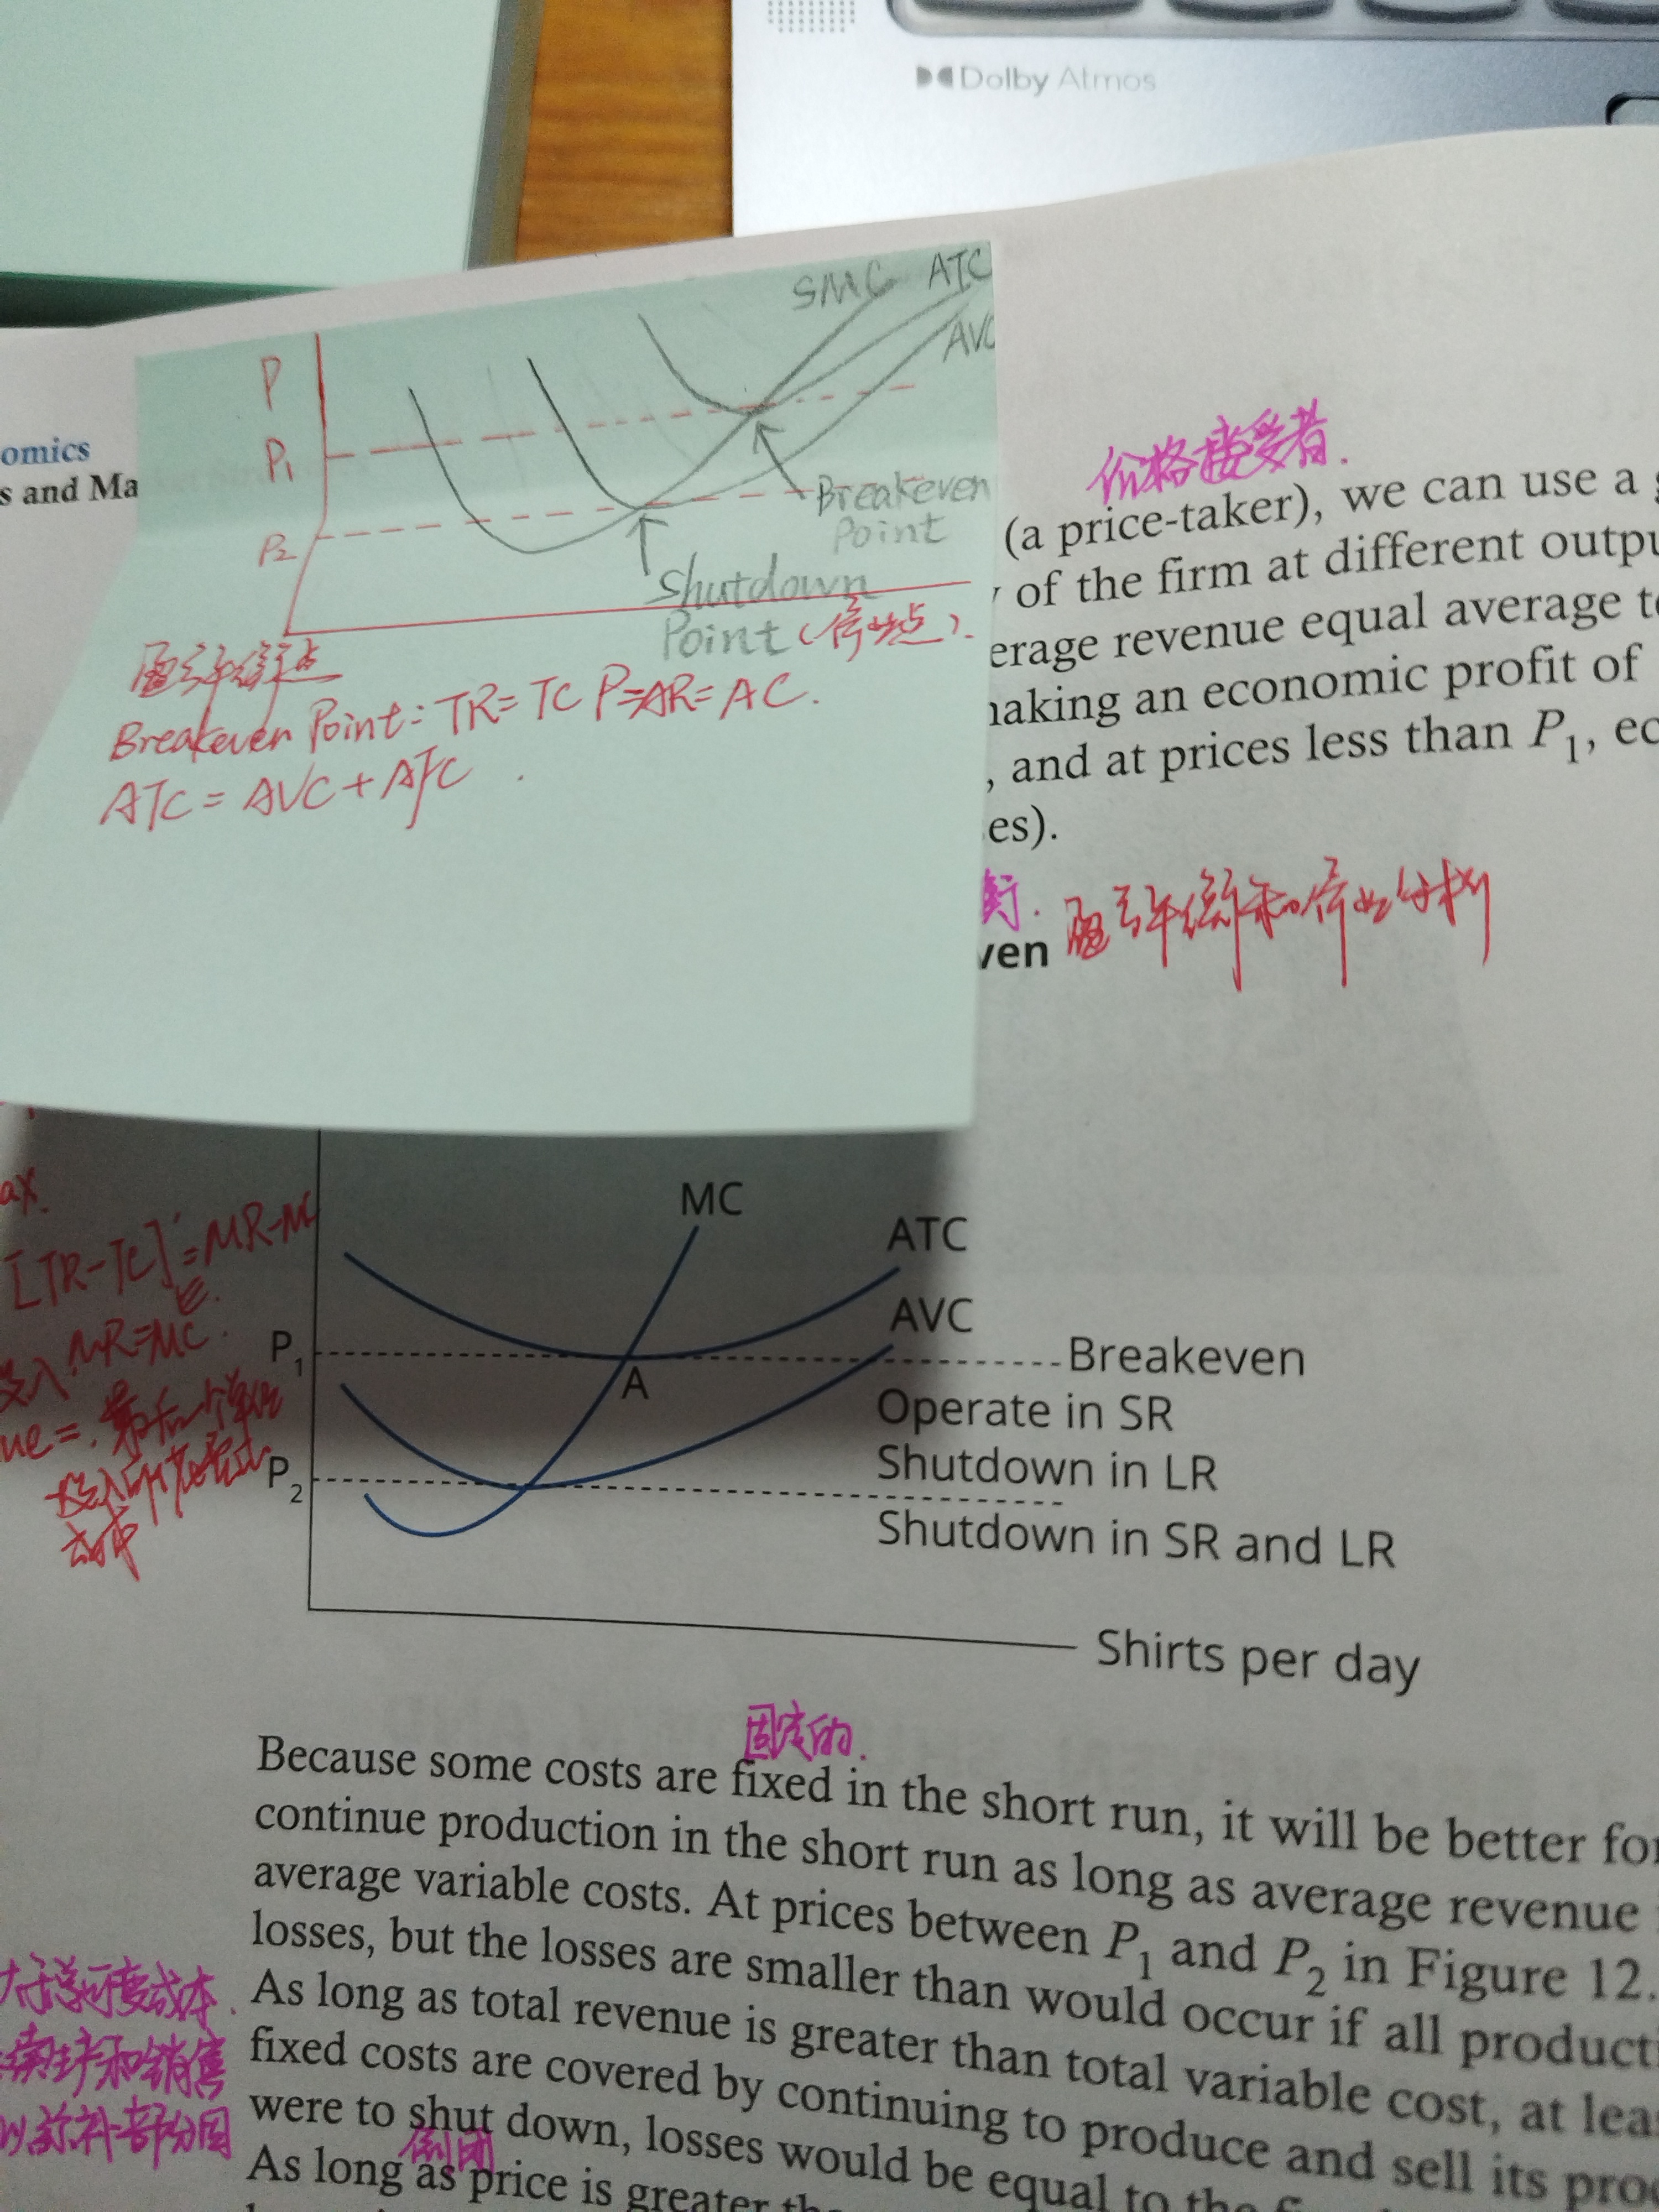 Dolby Atmos
SMC ATC
AVC
P
P₁
P₂
Breakeven
Point
Shutdown
Point (停业点).
盈亏平衡点
Breakeven Point: TR= TC P=AR= AC.
ATC = AVC + AFC
omics
s and Ma
价格接受者.
(a price-taker), we can use a
of the firm at different outpu
erage revenue equal average to
making an economic profit of
, and at prices less than P₁, ec
es).
衡.
ven 盈亏平衡和停业分析
ax.
[TR-TC]'=MR-MC
MR=MC.
ue=.
MC
ATC
AVC
P₁
Breakeven
A
Operate in SR
Shutdown in LR
P₂
Shutdown in SR and LR
Shirts per day
固定的.
Because some costs are fixed in the short run, it will be better for
continue production in the short run as long as average revenue
average variable costs. At prices between P₁ and P₂ in Figure 12.
losses, but the losses are smaller than would occur if all producti
As long as total revenue is greater than total variable cost, at leas
fixed costs are covered by continuing to produce and sell its prod
were to shut down, losses would be equal to the
As long as price is greater
总可变成本.
和销售
部分固
倒闭